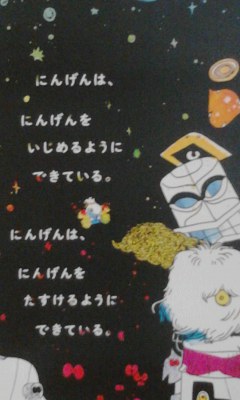 にんげんは、
にんげんを
いじめるように
できている。
にんげんは、
にんげんを
たすけるように
できている。